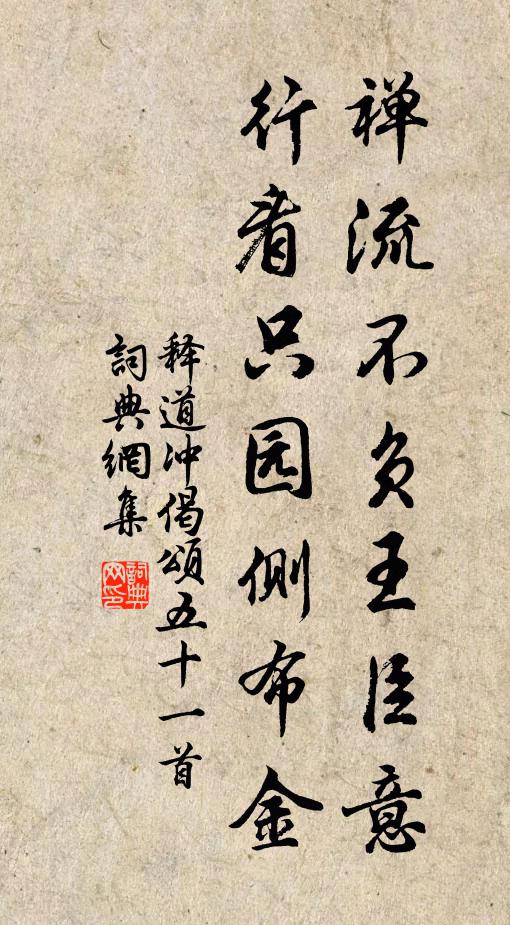 禅流不负王臣意
行者只园侧布金
释道冲偈頌五十一首
詞典網集
詞典网印